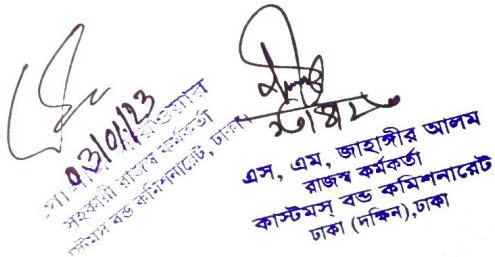 03/01/23
সহকারী রাজস্ব কর্মকর্তা
কাস্টমস বন্ড কমিশনারেট, ঢাকা
এস, এম, জাহাঙ্গীর আলম
রাজস্ব কর্মকর্তা
কাস্টমস্ বন্ড কমিশনারেট
ঢাকা (দক্ষিন),ঢাকা